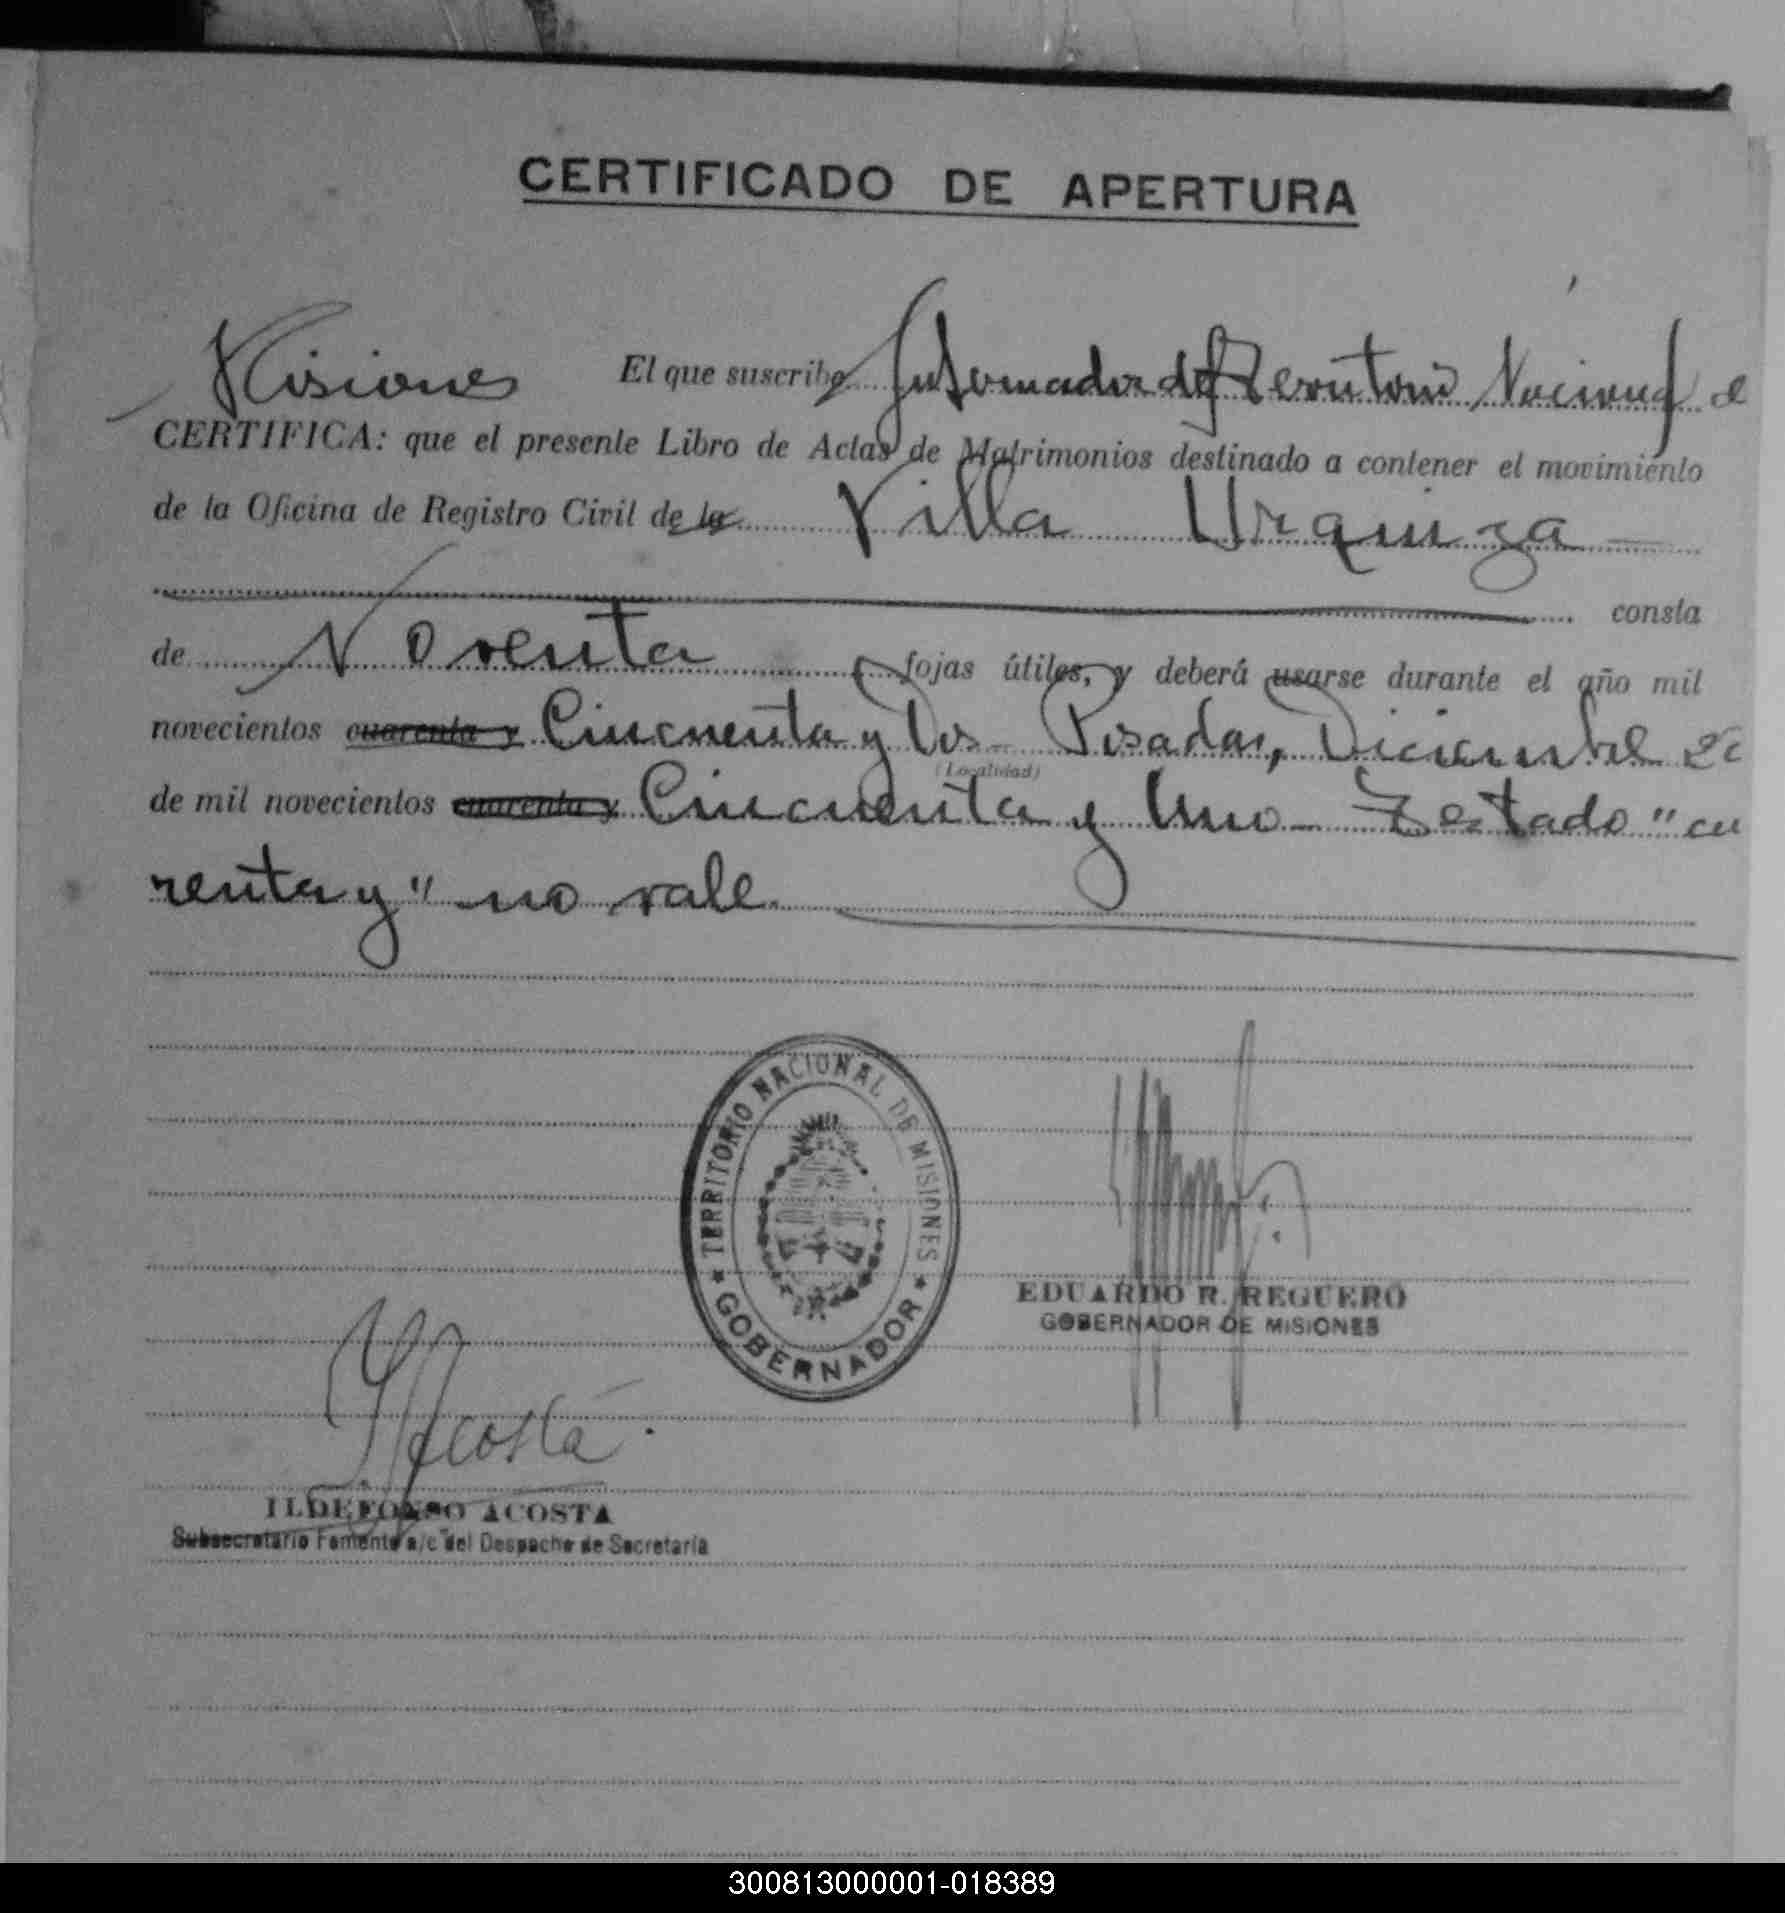 CERTIFICADO DE APERTURA
El que suscribe Gobernador del Territorio Nacional de
Misiones
CERTIFICA: que el presente Libro de Actas de Matrimonios destinado a contener el movimiento
de la Oficina de Registro Civil de la Villa Urquiza
consta
de Noventa fojas útiles, y deberá usarse durante el año mil
novecientos cuarenta y Cincuenta y Dos Posadas, Diciembre
(Localidad)
de mil novecientos cuarenta y Cincuenta y Uno - Testado "cu
renta y" no vale.
TERRITORIO NACIONAL DE MISIONES
GOBERNADOR
EDUARDO R. REGUERO
GOBERNADOR DE MISIONES
Acosta
ILDEFONSO ACOSTA
Subsecretario Fomento a/c del Despacho de Secretaría
300813000001-018389